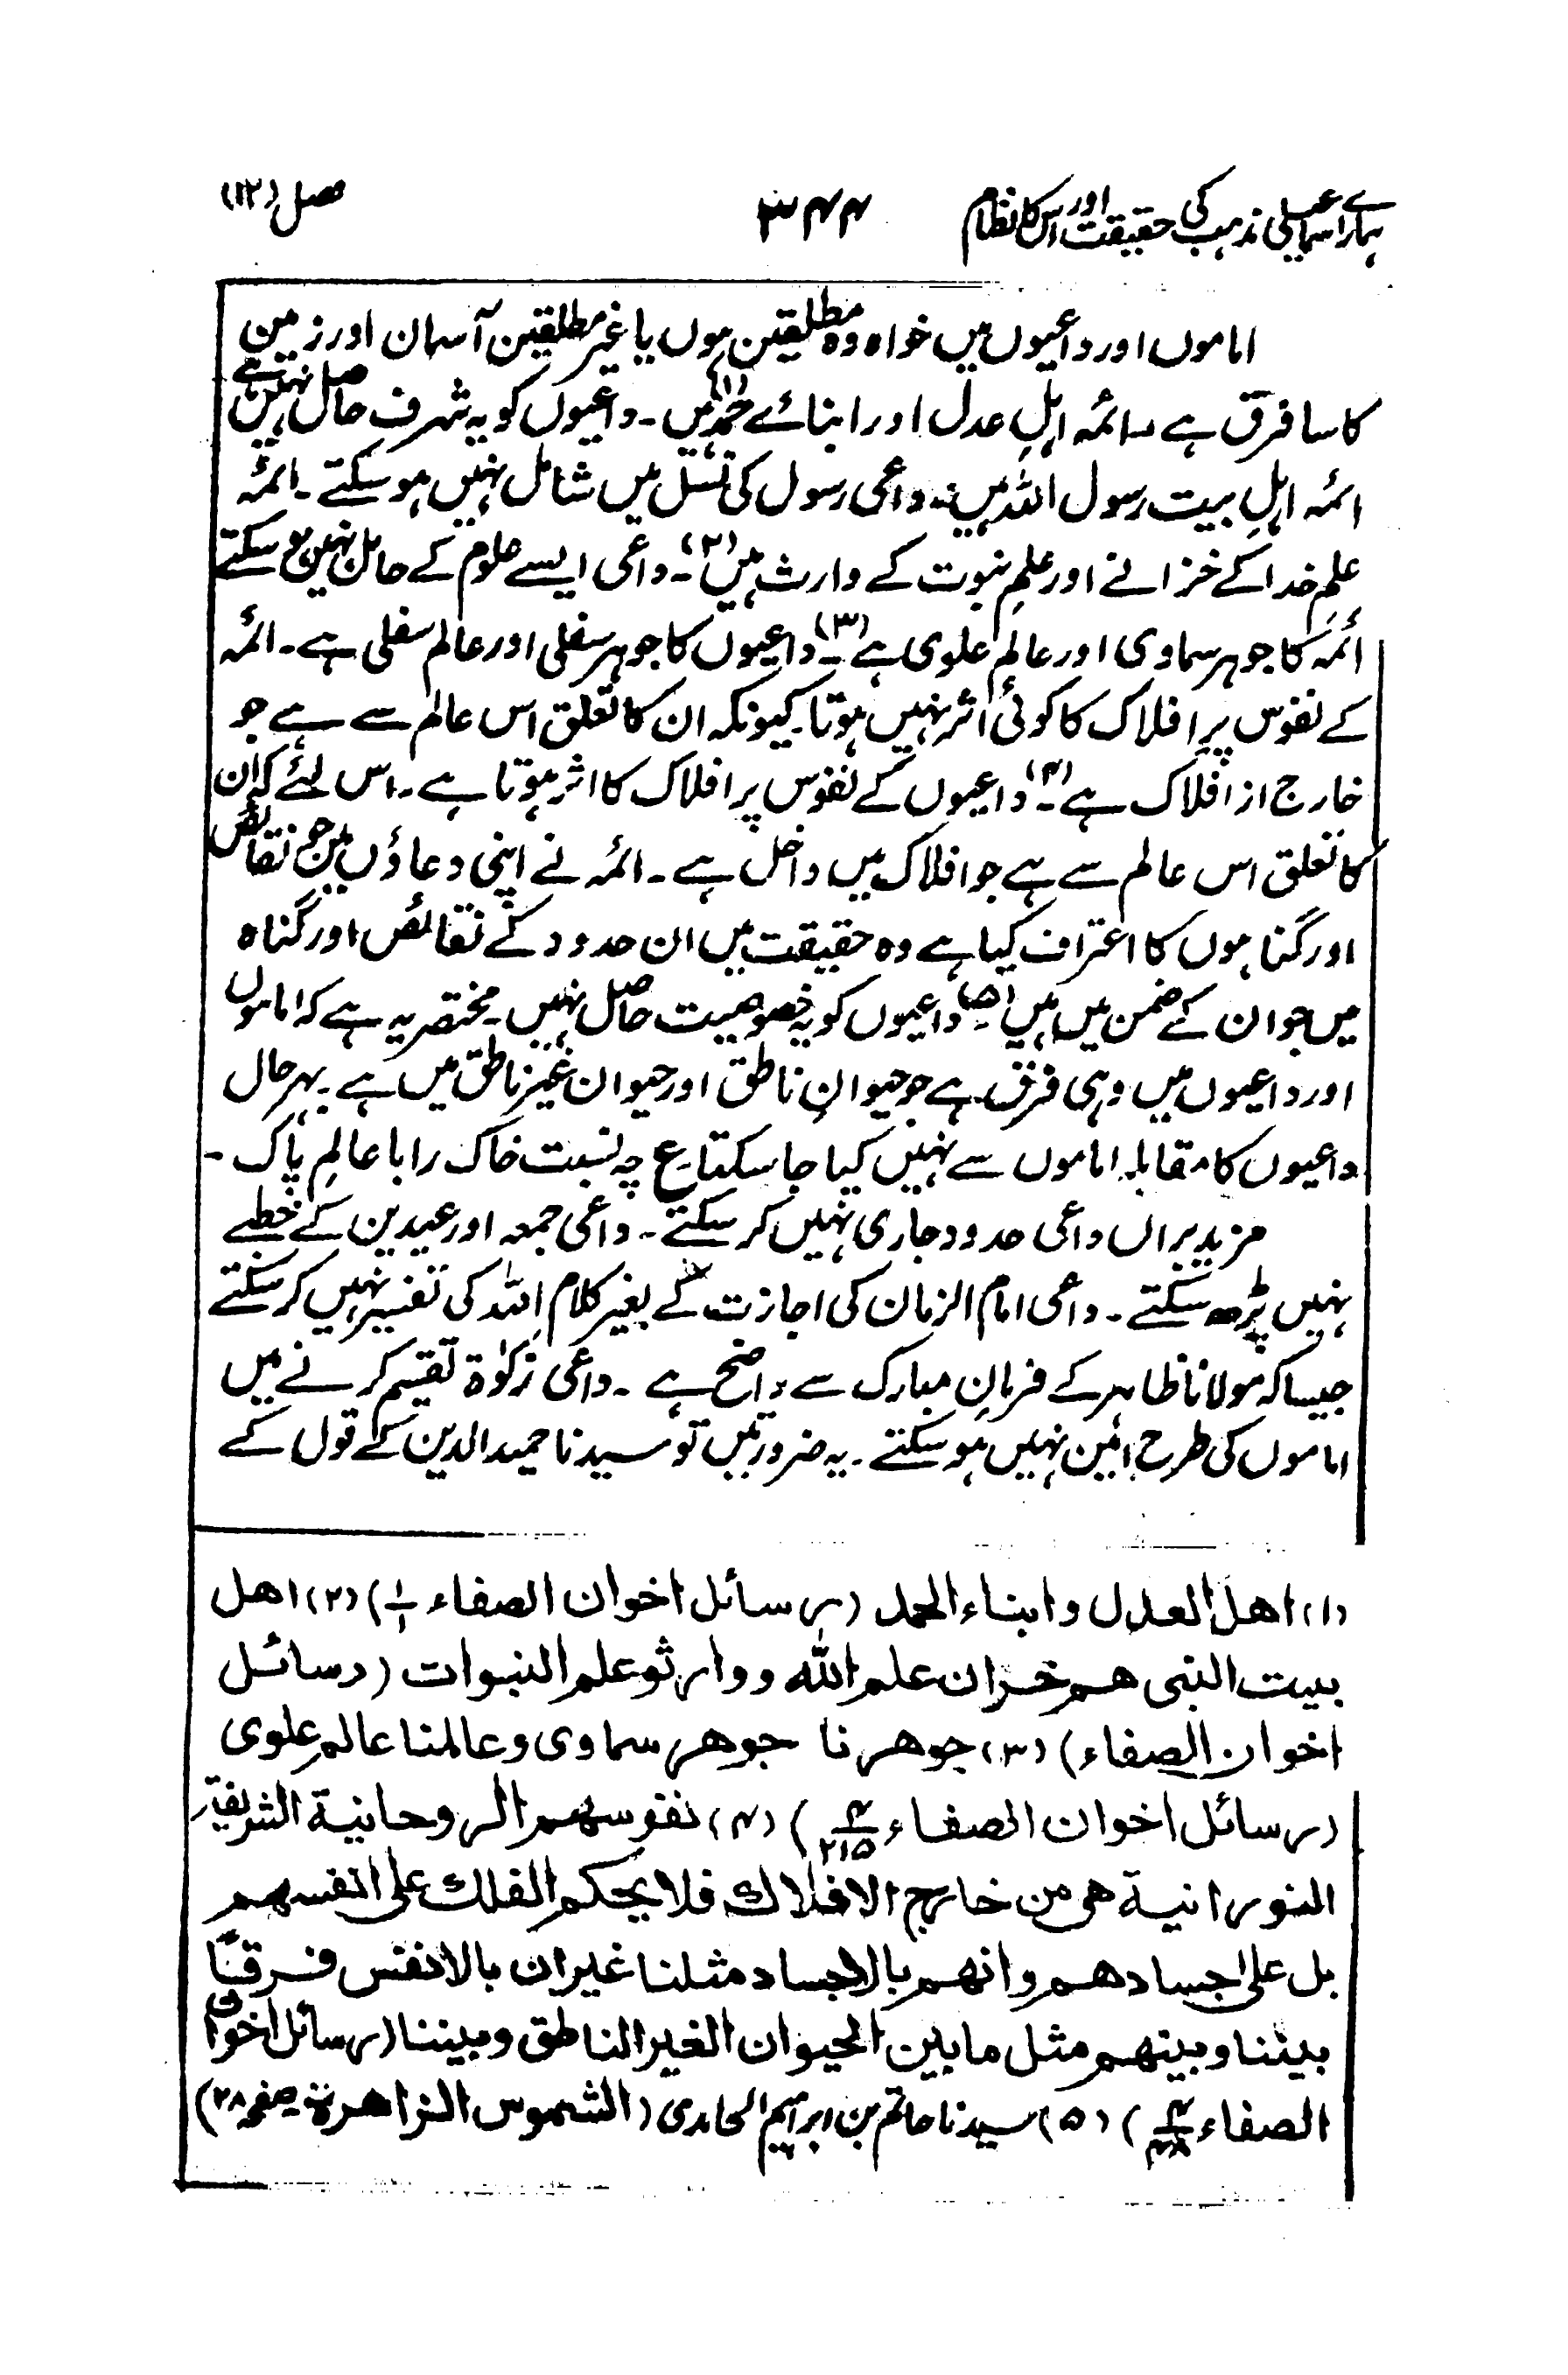 ہمارے اسماعیلی مذہب کی حقیقت اور اس کا نظام ۳۴۴ فصل (۱۲)
اماموں اور داعیوں میں خواہ وہ مطلقین ہوں یا غیر مطلقین آسمان اور زمین
کا سا فرق ہے۔ ائمہ اہلِ عدل اور ابنائے حمد ہیں (۱)۔ داعیوں کو یہ شرف حاصل نہیں ہے
ائمہ اہلِ بیت رسول اللہ ہیں۔ داعی رسول کی نسل میں شامل نہیں ہو سکتے۔ ائمہ
علمِ خدا کے خزانے اور علمِ نبوت کے وارث ہیں (۲)۔ داعی ایسے علوم کے حامل نہیں ہو سکتے
ائمہ کا جوہر سماوی اور عالم علوی ہے (۳)۔ داعیوں کا جوہر سفلی اور عالم سفلی ہے۔ ائمہ
کے نفوس پر افلاک کا کوئی اثر نہیں ہوتا۔ کیونکہ ان کا تعلق اس عالم سے ہے جو
خارج از افلاک ہے (۴)۔ داعیوں کے نفوس پر افلاک کا اثر ہوتا ہے۔ اس لئے کہ ان
کا تعلق اس عالم سے ہے جو افلاک میں داخل ہے۔ ائمہ نے اپنی دعاؤں میں جن نقائص
اور گناہوں کا اعتراف کیا ہے وہ حقیقت میں ان حدود کے نقائص اور گناہ
ہیں جو ان کے ضمن میں ہیں (۵)۔ داعیوں کو یہ خصوصیت حاصل نہیں۔ مختصر یہ ہے کہ اماموں
اور داعیوں میں وہی فرق ہے جو حیوانِ ناطق اور حیوان غیر ناطق میں ہے۔ بہر حال
داعیوں کا مقابلہ اماموں سے نہیں کیا جا سکتا۔ ع چہ نسبت خاک را با عالمِ پاک۔
مزید براں داعی حدود جاری نہیں کر سکتے۔ داعی جمعہ اور عیدین کے خطبے
نہیں پڑھ سکتے۔ داعی امام الزمان کی اجازت کے بغیر کلام اللہ کی تفسیر نہیں کر سکتے
جیسا کہ مولانا ظاہر کے فرمانِ مبارک سے واضح ہے۔ داعی زکوٰۃ تقسیم کرنے میں
اماموں کی طرح امین نہیں ہو سکتے۔ یہ ضرورتیں تو سیدنا حمید الدین کے قول کے
(۱) اهل العدل وابناء الحمد (رسائل اخوان الصفاء ۱/۱) (۲) اهل
بيت النبى هم خزان علم الله ووارثو علم النبوات (رسائل
اخوان الصفاء) (۳) جوهرنا جوهر سماوى وعالمنا عالم علوى
(رسائل اخوان الصفاء ۴/۲۱۵) (۴) نفوسهم الروحانية الشريفة
النورانية هى من خارج الافلاك فلا يحكم الفلك على انفسهم
بل على اجسادهم وانهم بالاجساد مثلنا غير ان بالانفس فرقًا
بيننا وبينهم مثل ما بين الحيوان الغير الناطق وبيننا (رسائل اخوان
الصفاء) (۵) سیدنا حاتم بن ابراہیم الحامدی (الشموس الزاهرة صفحہ ۲۸)